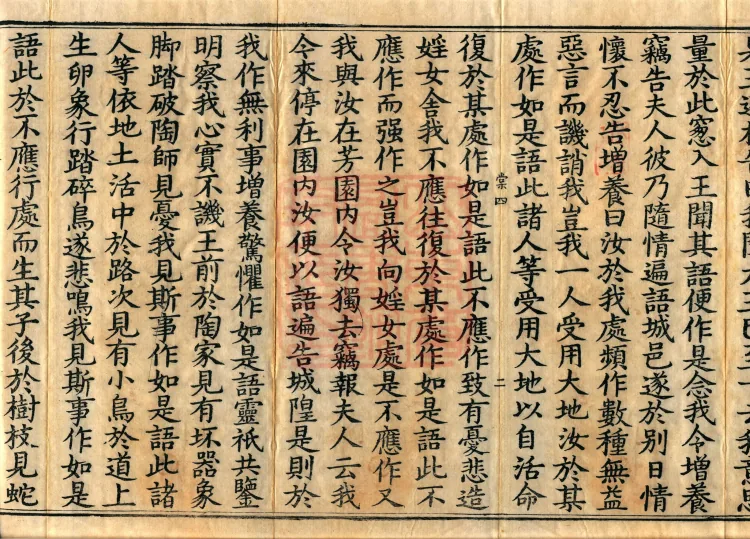 量於此窓入王聞其語便作是念我今增養
竊告夫人彼乃隨情遍語城邑遂於別日情
懷不忍告增養曰汝於我處頻作數種無益
惡言而譏誚我豈我一人受用大地汝於其
處作如是語此諸人等受用大地以自活命
棠四
二
復於某處作如是語此不應作致有憂悲造
婬女舍我不應往復於某處作如是語此不
應作而强作之豈我向婬女處是不應作又
我與汝在芳園內令汝獨去竊報夫人云我
今來停在園內汝便以語遍告城隍是則於
我作無利事增養驚懼作如是語靈祇共鑒
明察我心實不譏王前於陶家見有坏器象
脚踏破陶師見憂我見斯事作如是語此諸
人等依地土活中於路次見有小鳥於道上
生卵象行踏碎鳥遂悲鳴我見斯事作如是
語此於不應行處而生其子後於樹枝見蛇